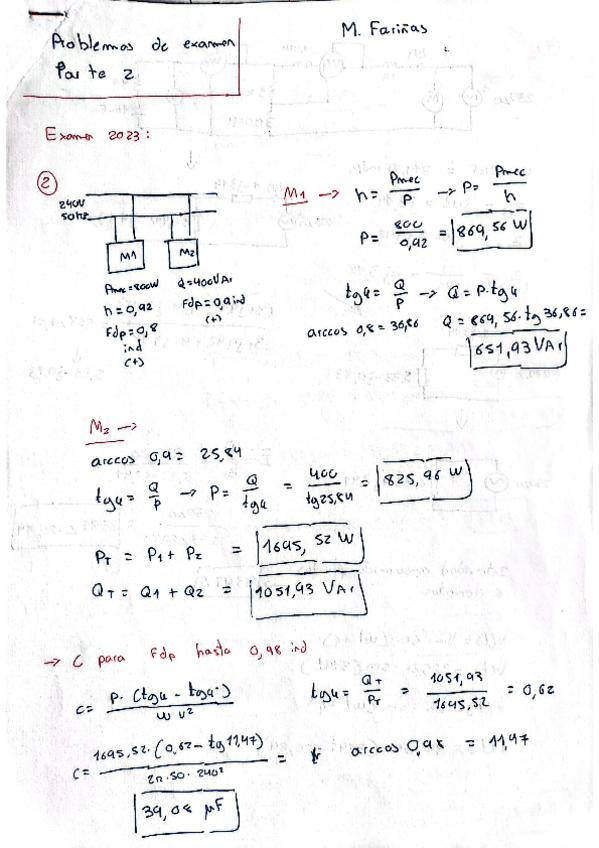 Problemas de examen
Parte 2
M. Fariñas
Examen 2023:
2
240V
50Hz
M1
M2
Pmec=800W
h=0,92
Fdp=0,8
ind
(+)
Q=400VAr
Fdp=0,9 ind
(+)
M1 → h = Pmec/P → P = Pmec/h
P = 800/0,92 = 869,56 W
tgφ = Q/P → Q = P·tgφ
arccos 0,8 = 36,86 Q = 869,56·tg 36,86 =
651,93 VAr
M2 →
arccos 0,9 = 25,84
tgφ = Q/P → P = Q/tgφ = 400/tg25,84 = 825,96 W
PT = P1 + P2 = 1695,52 W
QT = Q1 + Q2 = 1051,93 VAr
→ C para Fdp hasta 0,98 ind
C = P·(tgφ - tgφ')/ω V² tgφ = QT/PT = 1051,93/1695,52 = 0,62
C = 1695,52·(0,62 - tg 11,47)/2π·50·240² = arccos 0,98 = 11,47
39,08 μF